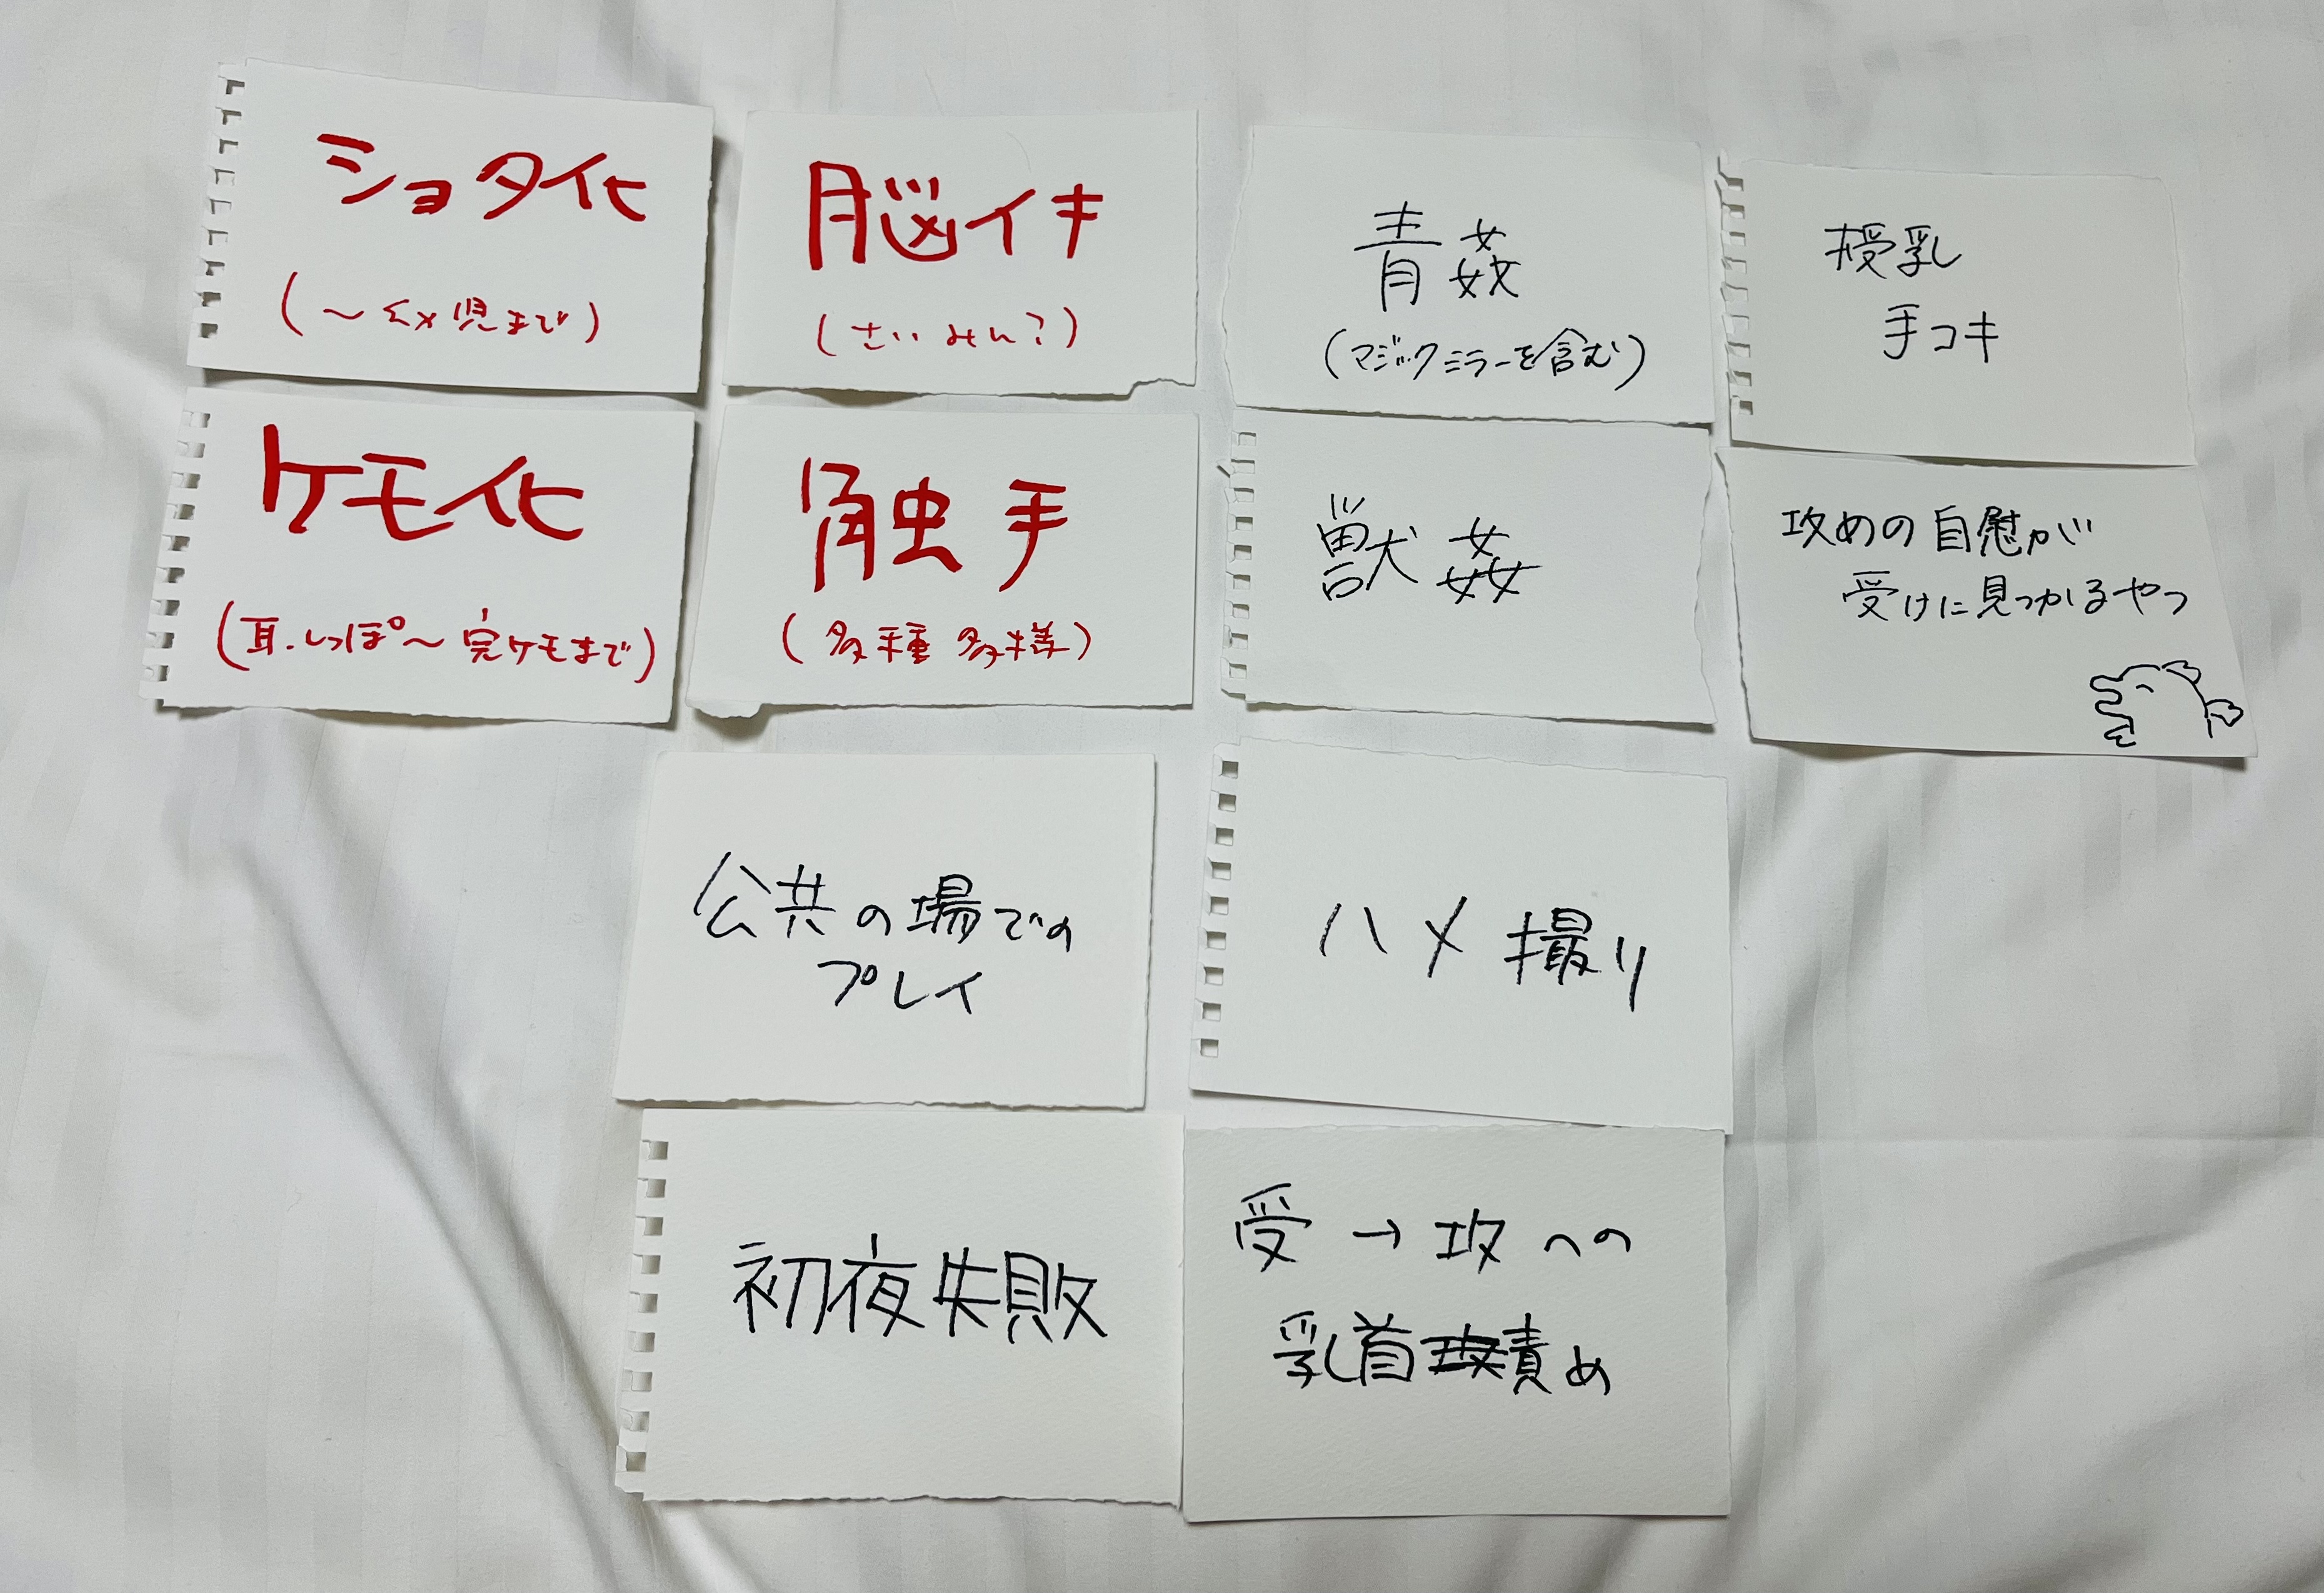 ショタ化
(〜幼児まで)
脳イキ
(さいみん?)
青姦
(マジックミラーを含む)
授乳
手コキ
ケモ化
(耳.しっぽ〜完ケモまで)
触手
(多種多様)
獣姦
攻めの自慰が
受けに見つかるやつ
公共の場での
プレイ
ハメ撮り
初夜失敗
受→攻への
乳首責め